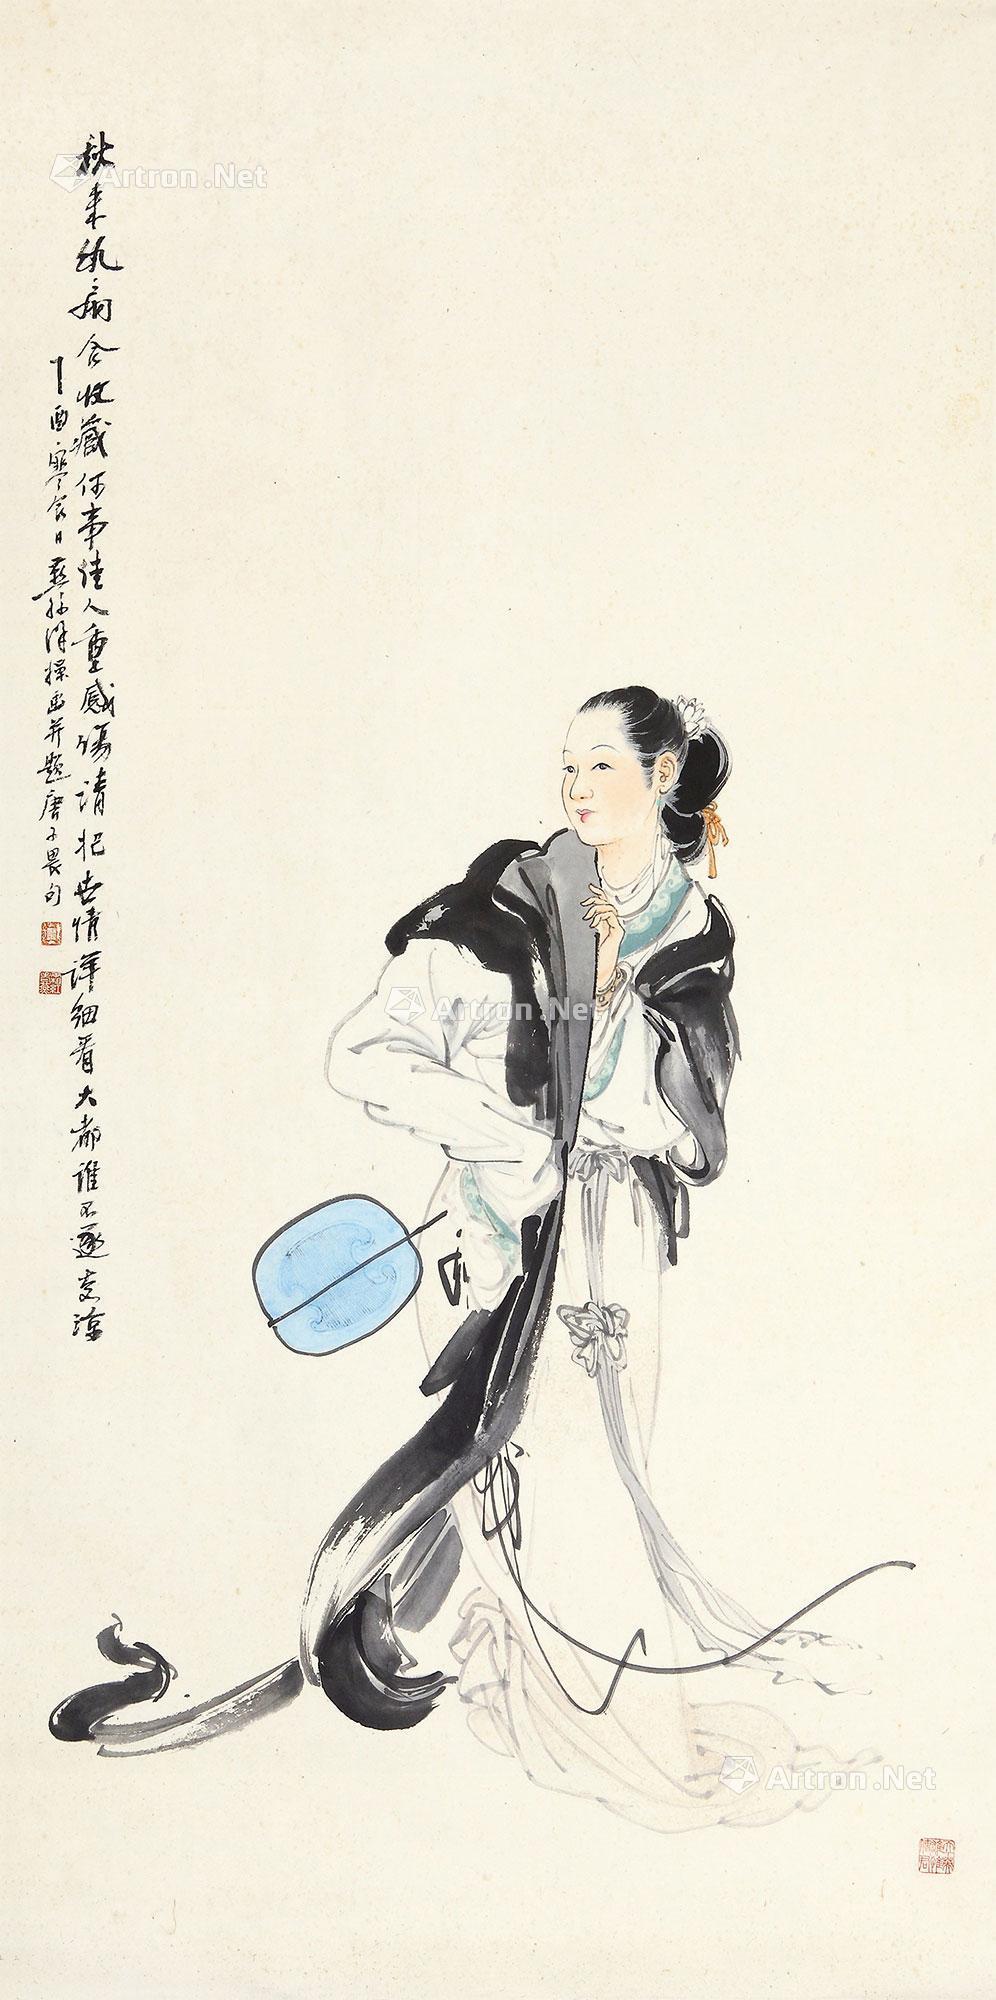 秋来纨扇合收藏何事佳人重感伤请把世情详细看大都谁不逐炎凉
酉寒食日燕孙潘操画并题唐子畏句
Artron.Net
Artron.Net
Artron.Net